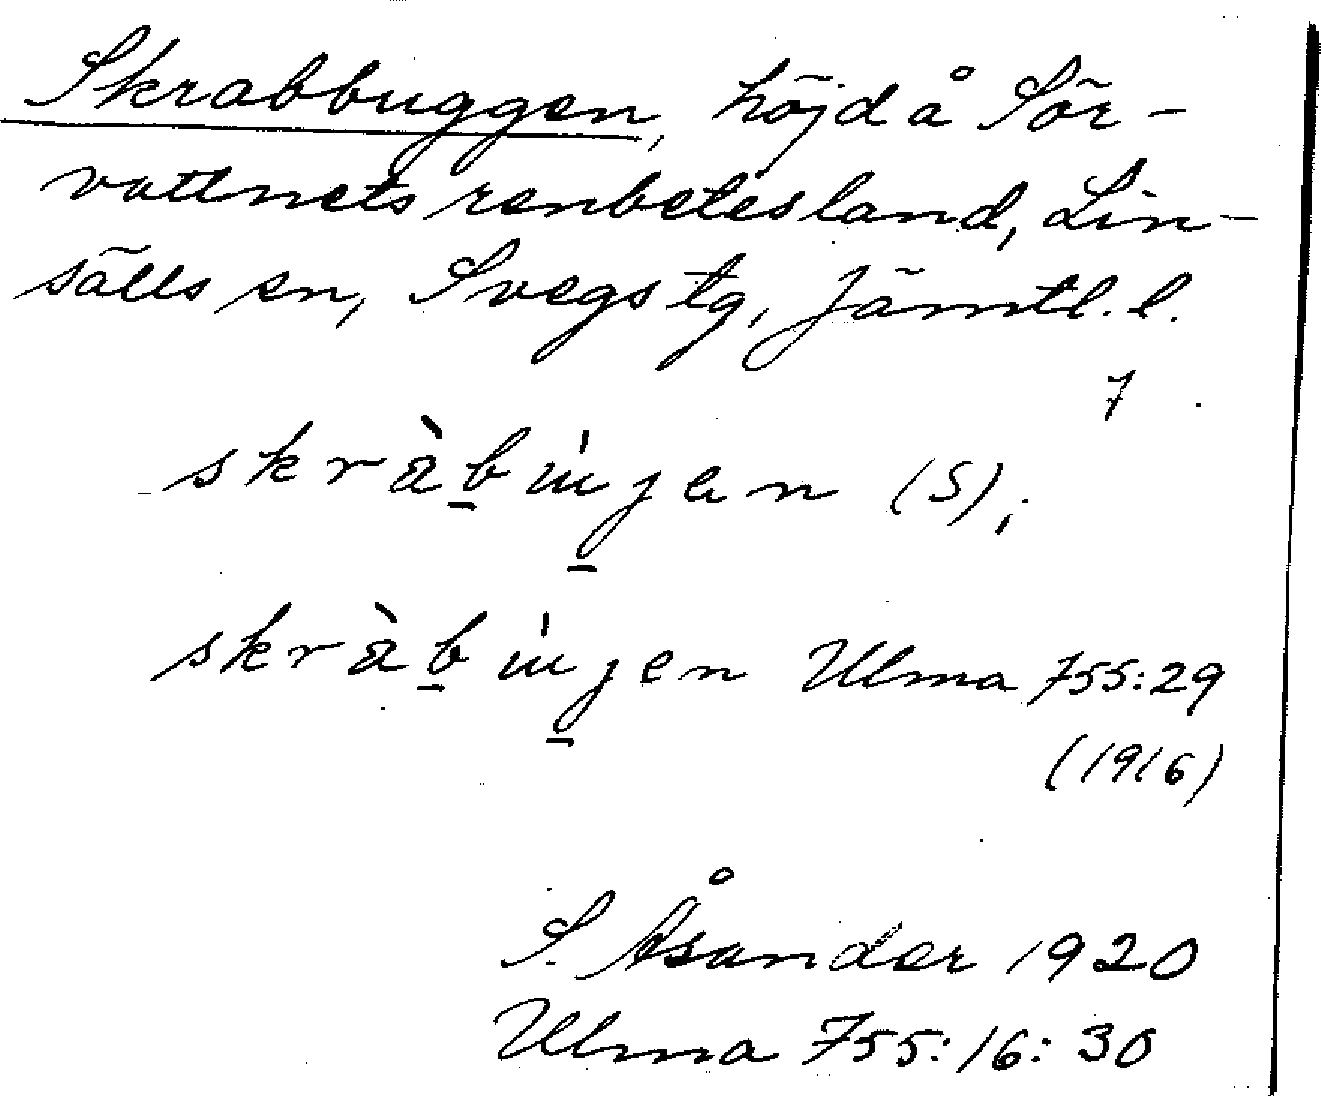 Skrabbuggen, höjd å Sör-
vattnets renbetesland, Lin-
sälls sn, Svegs tg, Jämtl. l.
7
skràbu̍jen (S),
skràbu̍jen Ulma 755:29
(1916)
S. Åsander 1920
Ulma 755:16:30